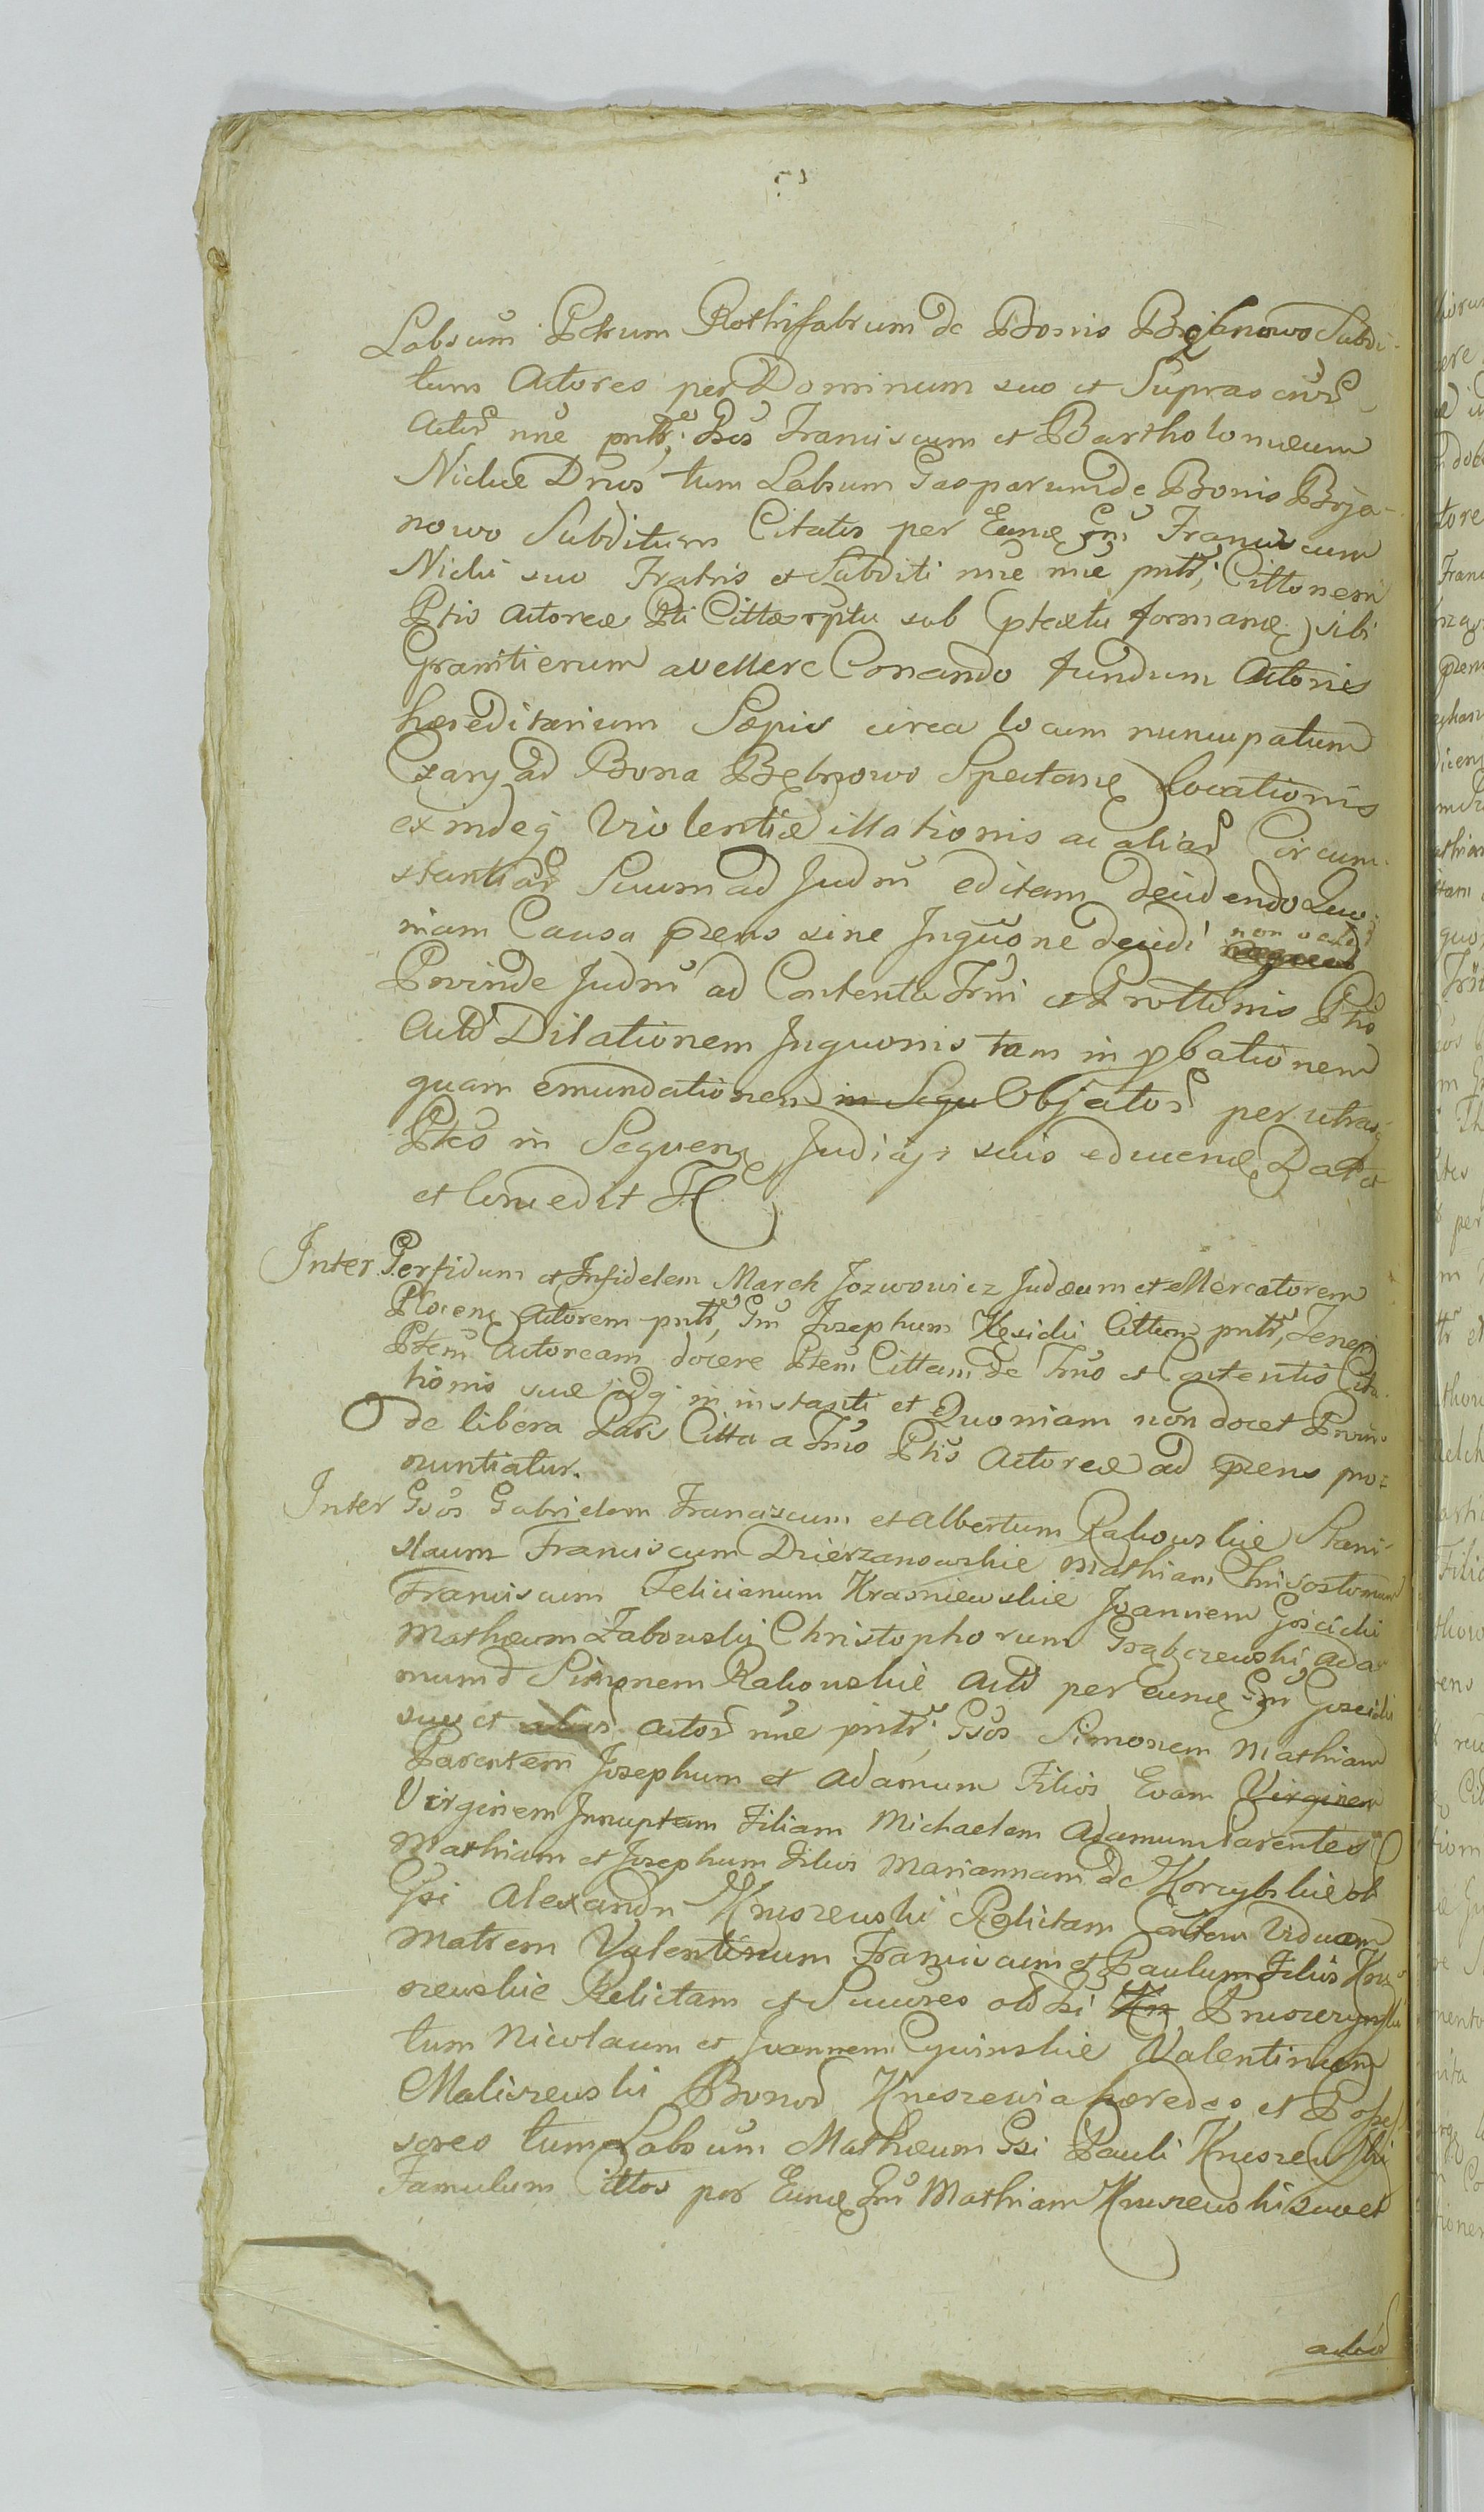 Labsum Petrum Rothifabrum de Bonis Bębnowo Subdi-
tum Actores per Dominum suo et Supras civor
Actor nne pntr; Gsos Franciscum et Bartholomæum
Nickie Dnos tum Labsum Gasparum de Bonis Boja-
nowo Subditum Citatos per Eunde Gm Franciscum
Nicki suo Fratris et Subditi nne nne pntr; Cittonem
Ptis Actoreæ Pti Cittæ rptu sub ptextu formane sibi
Granitierum avellere Conando fundum Actoris
hæreditarium Sæpis circa locum nuncupatum
ad Bona Bębnowo Spectane locationis
exindeq Violentiæ illationis ac aliar Circum-
stantiar Suum ad Judm editam decidendo Quo-
niam Causa præns sine Inquone decidi non valet
Provinde Judm ad Contenta Trni et Prottonis Ptis
Actor Dilationem Inquonis tam in pbationem
quam emundationem in Sequ Objator per utrasq
Ptes in Sequene Judiajs suis educene Dat et
et Concedit
Inter Perfidum et Infidelem March Jozwowicz Judæum et Mercatorem
Plocene Actorem pntr, Gm Josephum Kęsicki Cittum pntr, Teneri
Ptem Actoream docere Ptem Cittam de Trno et Contentis Cita-
tionis suæ idq in instanti et Quoniam non docet Provin-
de libera Pars Citta a Trno Ptis Actoreæ ad præns pro-
nuntiatur.
Inter Gsos Gabrielem Franciscum et Albertum Rakowskie Stani-
slaum Franciscum Dzierzanowskie Mathiam Chrisostomum
Franciscum Felicianum Krasniewskie Joannem Goscicki
Mathæum Zabowski Christophorum Grąbczewski Ada-
mum Simonem Rakowskie Actor per eunde Gm Goscicki
suo et alior Actor nne pntr; Gsos Simonem Mathiam
Parentem Josephum et Adamum Filios Evam Virginem
Virginem Innuptam Filiam Michaelem Adamum Parentes
Mathiam et Josephum Filios Mariannam de Korzybskie ol
Gsi Alexandri Kruszewski Relictam Viduam
Matrem Valentinum Franciscum et Paulum Filios Kru-
szewskie Relictam et Succres ol Gsi Kr Pruszczynski
tum Nicolaum et Joannem Cywinskie Valentinum
Maliszewski Bonor Kruszewia hæredes et Posse-
sores tum Labsum Mathæum Gsi Pauli Kruszewski
Famulum Cittos per Eunde Gm Mathiam Kruszewski suo et
actor